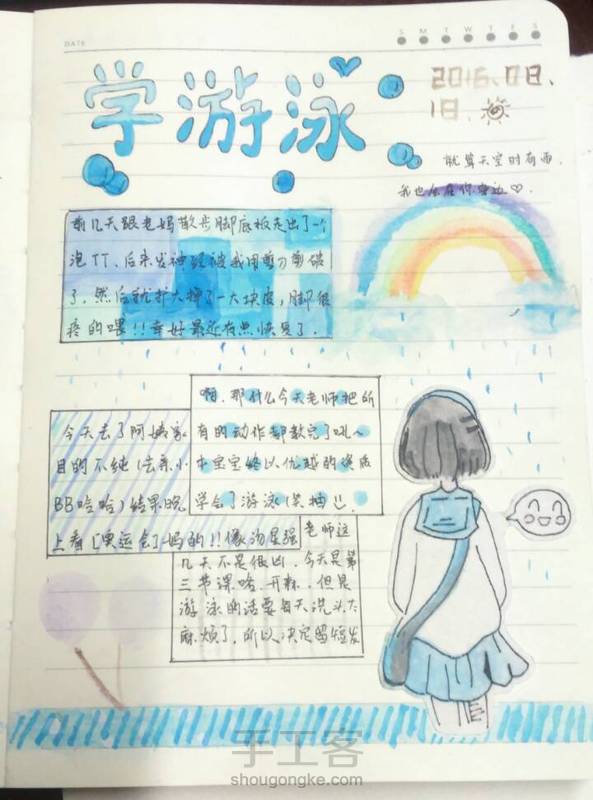 DATE
S M T W T F S
学游泳
2016.08.
18.
就算天空时有雨,
我也会在你身边♡.
前几天跟老妈散步脚底板走出了一个
泡TT、后来发神经被我用剪刀剪破
了,然后就扩大掉了一大块皮,脚很
疼的喂!!幸好最近有点恢复了.
啊,那什么今天老师把所
有的动作都教完了吼~
本宝宝终以优越的资质
学会了游泳(笑抽!!.
今天去了阿姨家
目的不纯(去看小
BB哈哈)结果晚
上看[奥运会]妈的!!像泡星强
老师这
几天不是很凶,今天是第
三节课啥,开森.但是
游泳的话要每天洗头太
麻烦了,所以决定留短发
手工客
shougongke.com